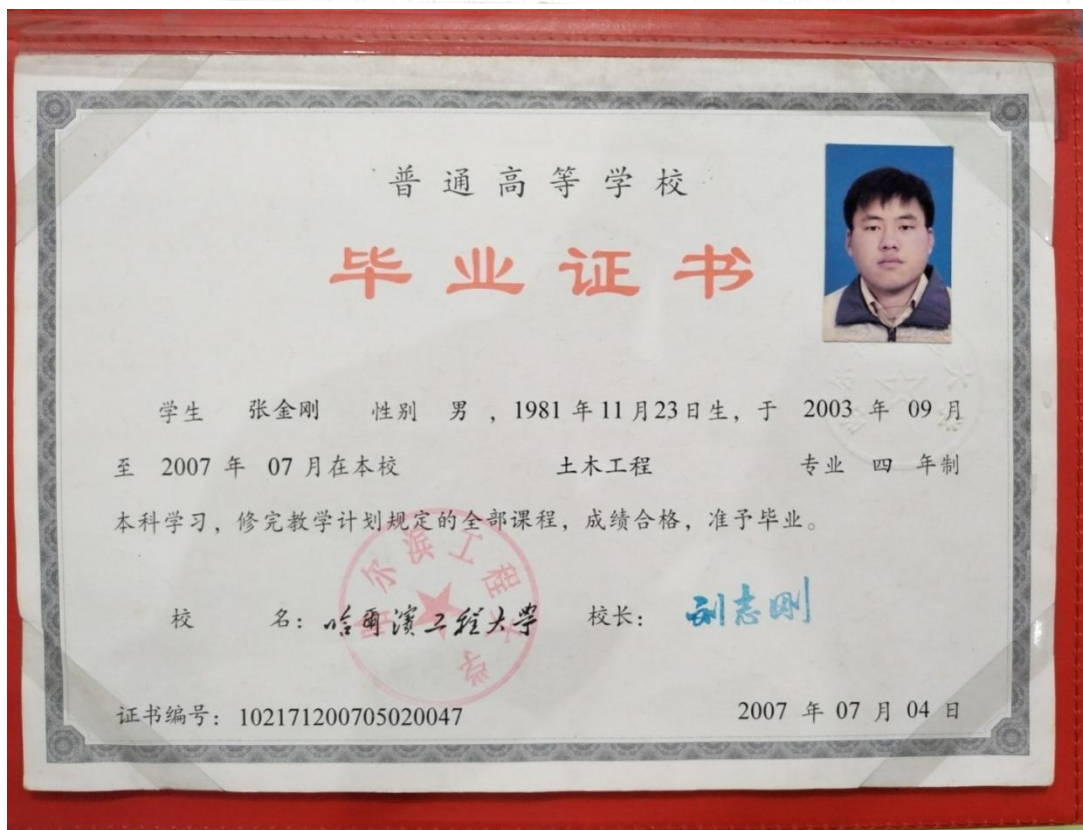 普通高等学校
毕业证书
学生 张金刚 性别 男 ，1981 年 11 月23日生，于 2003 年 09 月
至 2007 年 07 月在本校 土木工程 专业 四 年制
本科学习，修完教学计划规定的全部课程，成绩合格，准予毕业。
校 名：哈爾濱工程大学 校长：刘志刚
哈尔滨工程大学
证书编号：102171200705020047 2007 年 07 月 04 日